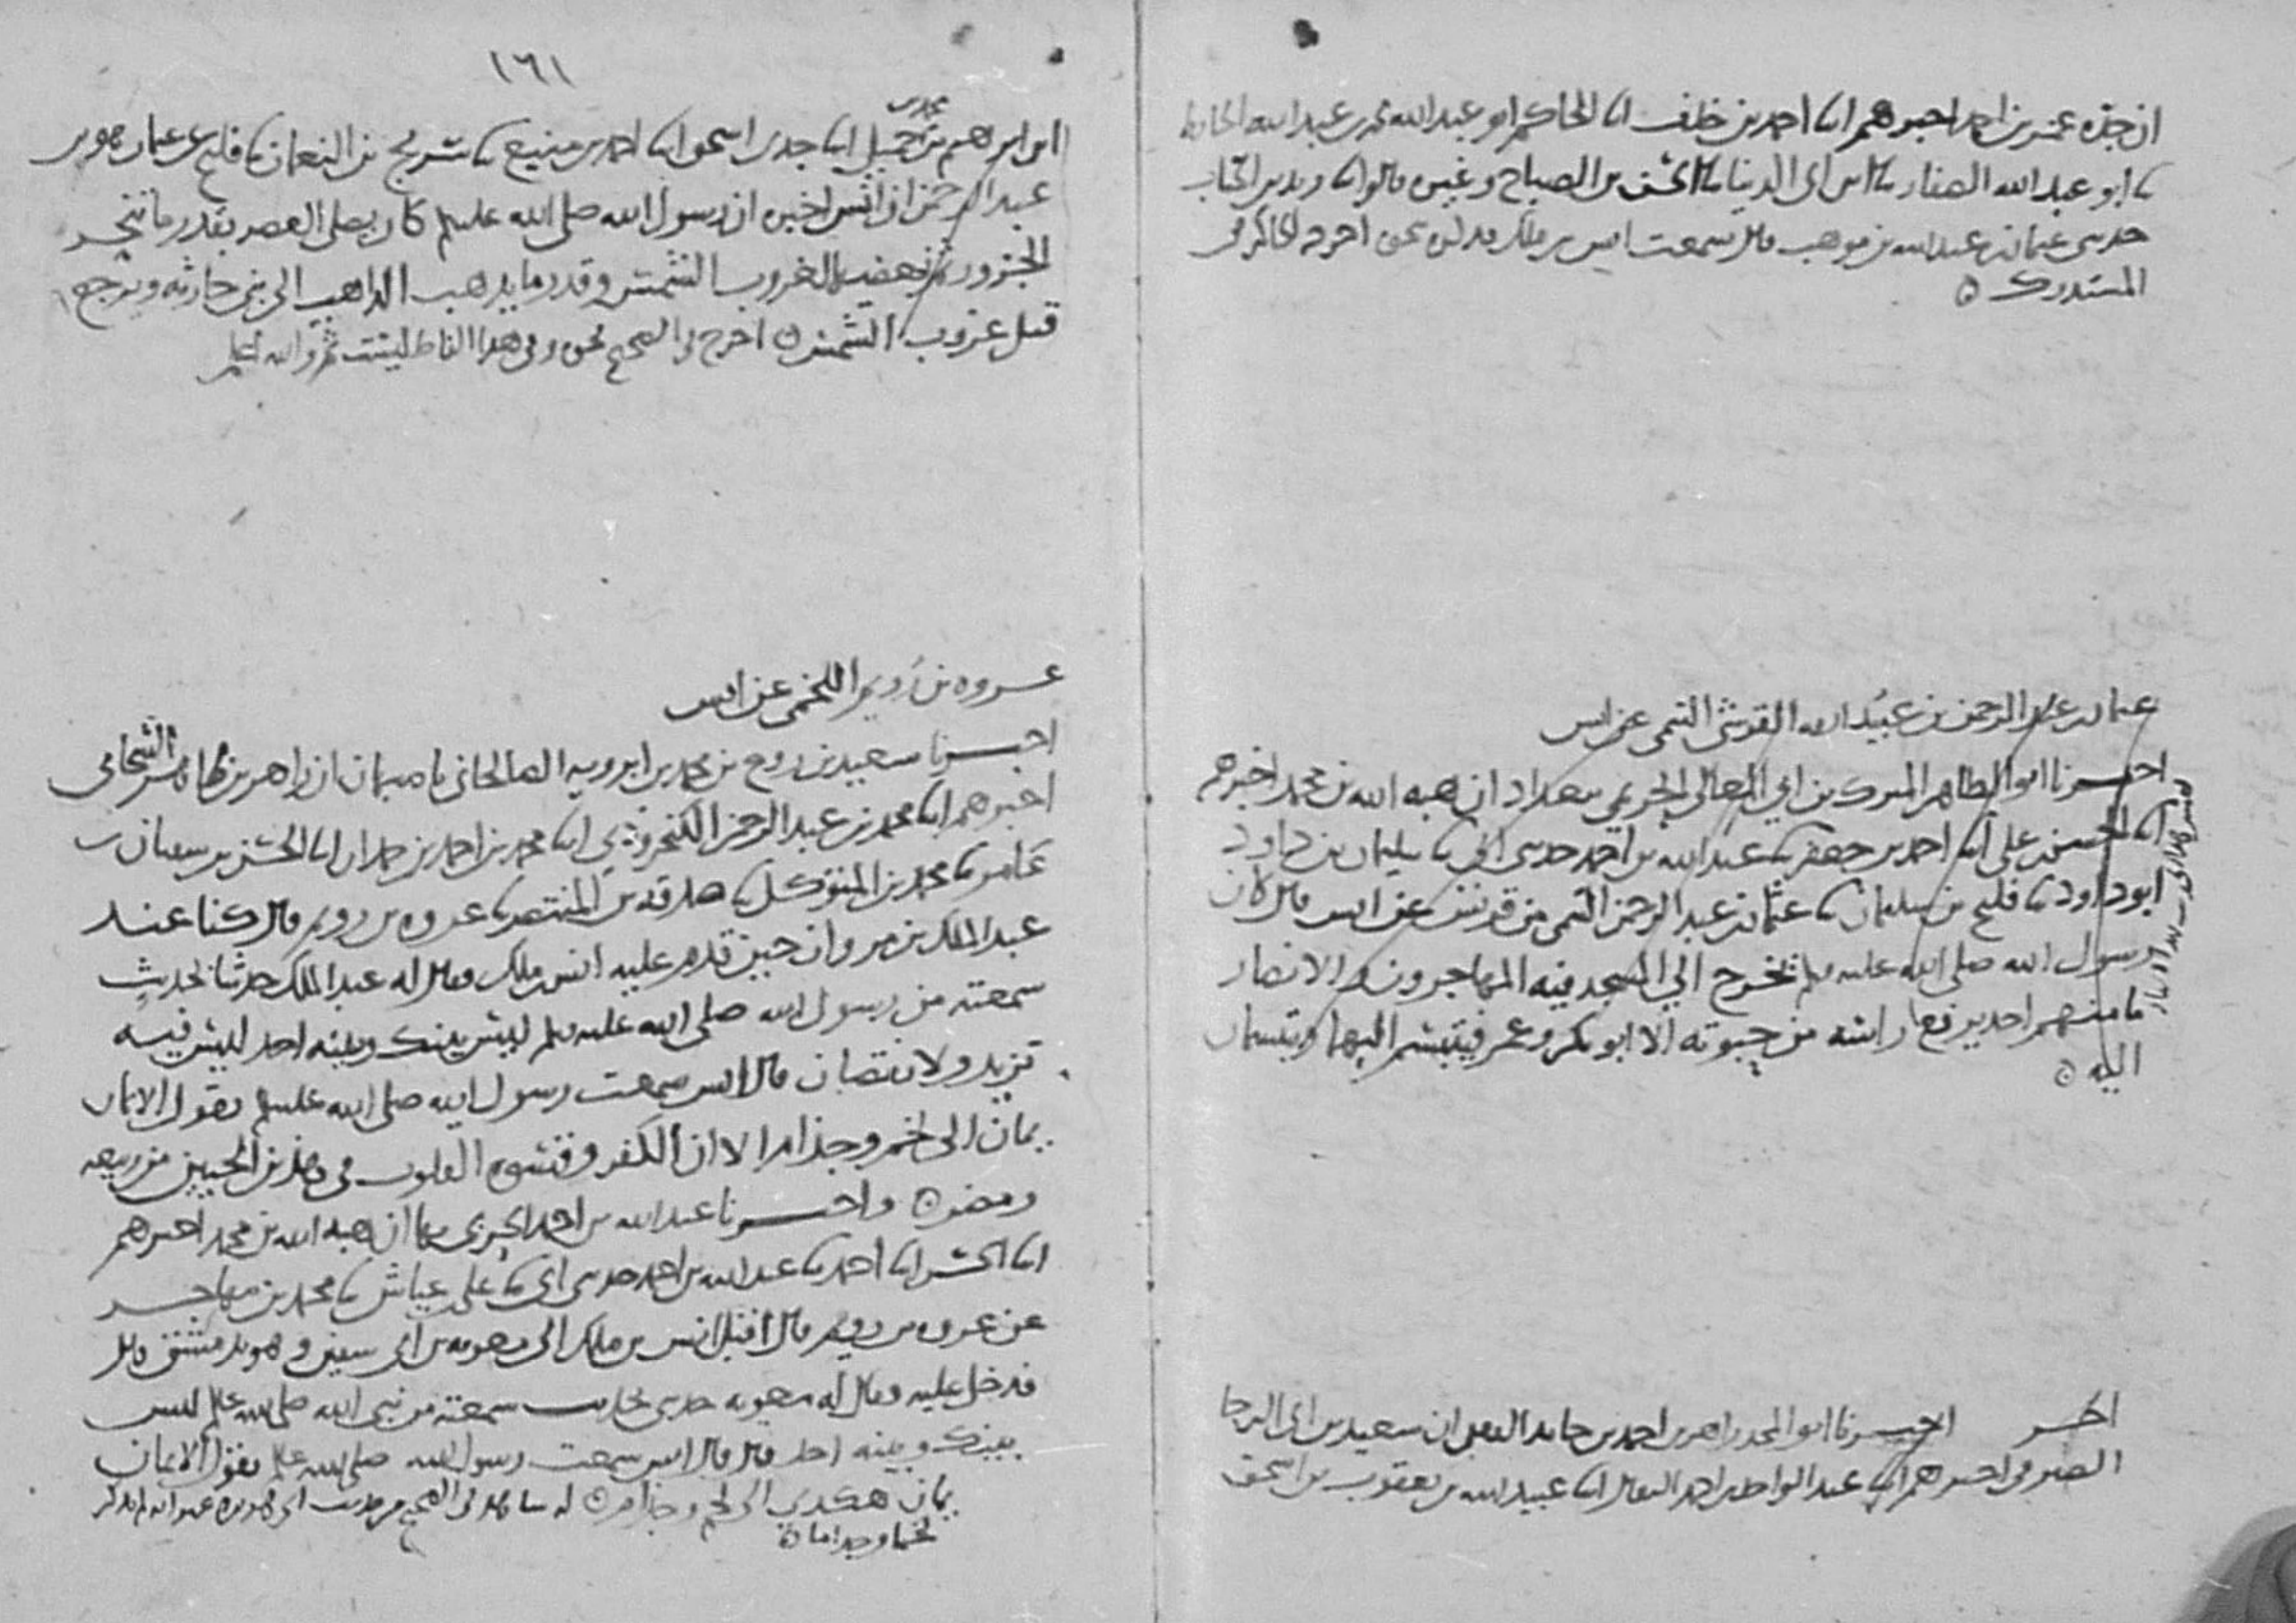 ان جده عمر بن احمد اخبرهم ابنا احمد بن خلف ابنا الحاكم ابو عبد الله محمد بن عبد الله الحافظ
ثنا ابو عبد الله الصفار ثنا ابن ابي الدنيا ثنا الحسن بن الصباح وغيره قالوا ثنا زيد بن الحباب
حدثني عثمان بن عبد الله بن موهب قال سمعت انس بن ملك نحوه اخرجه الحاكم في
المستدرك
عثمان بن عبد الرحمن بن عبيد الله القرشي التيمي عن انس
اخبرنا ابو الطاهر المبرك بن ابي المعالي الحريمي ببغداد ان هبة الله بن محمد اخبرهم
ابنا الحسن بن علي ابنا احمد بن جعفر ثنا عبد الله بن احمد حدثني ابي ثنا سليمان بن داود
ابو داود ثنا فليح بن سليمان ثنا عثمان بن عبد الرحمن التيمي من قريش عن انس قال كان
رسول الله صلى الله عليه وسلم يخرج الي المسجد فيه المهاجرون والانصار
ما منهم احد يرفع راسه من حبوته الا ابو بكر وعمر فيتبسم اليهما ويتبسمان
اليه
اخر اخبرنا ابو المجد زاهر بن احمد بن حامد الثقفي ان سعيد بن ابي الرجا
الصيرفي اخبرهم ابنا عبد الواحد بن احمد البقال ابنا عبيد الله بن يعقوب بن اسحق
١٦١
ابن ابرهيم بن محمد بن جميل ابنا جدي اسحق ابنا احمد بن منيع ثنا سريج بن النعمان ثنا فليح عن عثمان هو بن
عبد الرحمن ان انس اخبره ان رسول الله صلى الله عليه وسلم كان يصلي العصر بقدر ما تنحر
الجزور ثم لغروب الشمس وقدر ما يذهب الذاهب الى بني حارثه ويرجع
قبل غروب الشمس اخرج في الصحيح نحوه وفي هذا الفاظ ليست ثم والله اعلم
عروه بن رويم اللخمي عن انس
اخبرنا سعيد بن روح بن محمد بن ابرويه الصالحاني باصبهان ان زاهر بن طاهر الشحامي
اخبرهم ابنا محمد بن عبد الرحمن الكنجروذي ابنا محمد بن احمد بن حمدان ابنا الحسن بن سفيان ثنا
عامر ثنا محمد بن المتوكل ثنا صدقه بن المنتصر ثنا عروه بن رويم قال كنا عند
عبد الملك بن مروان حين قدم عليه انس بن ملك وقال له عبد الملك حدثنا بحديث
سمعته من رسول الله صلى الله عليه وسلم ليس بينك وبينه احد ليس فيه
تزيد ولا نقصان قال انس سمعت رسول الله صلى الله عليه وسلم يقول الايمان
يمان الى لخم وجذام الا ان الكفر وقسوه القلوب في هذين الحيين من ربيعه
ومضر واخبرنا عبد الله بن احمد الحربي بها ان هبة الله بن محمد اخبرهم
ابنا الحسن ابنا احمد ثنا عبد الله بن احمد حدثني ابي ثنا علي بن عياش ثنا محمد بن مهاجر
عن عروه بن رويم قال اقبل انس بن ملك الى معويه بن ابي سفين وهو بدمشق قال
فدخل عليه وقال له معويه حدثني بحديث سمعته من نبي الله صلى الله عليه وسلم ليس
بينك وبينه احد قال قال انس سمعت رسول الله صلى الله عليه وسلم يقول الايمان
يمان هكذى الى لخم وجذام له شاهد في الصحيح من حديث ابي هريره غير انه لم يذكر
لخما وجذاما